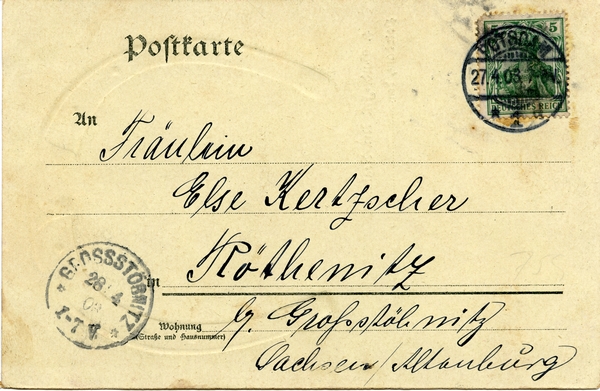 Postkarte
5 5
POTSDAM
27.4.03
DEUTSCHES REICH
* 1
An
Fräulein
Else Kertzscher
in
Röthenitz
GROSSSTÖBNITZ
28 4
Wohnung
(Straße und Hausnummer)
b/ Großstöbnitz
Sachsen Altenburg